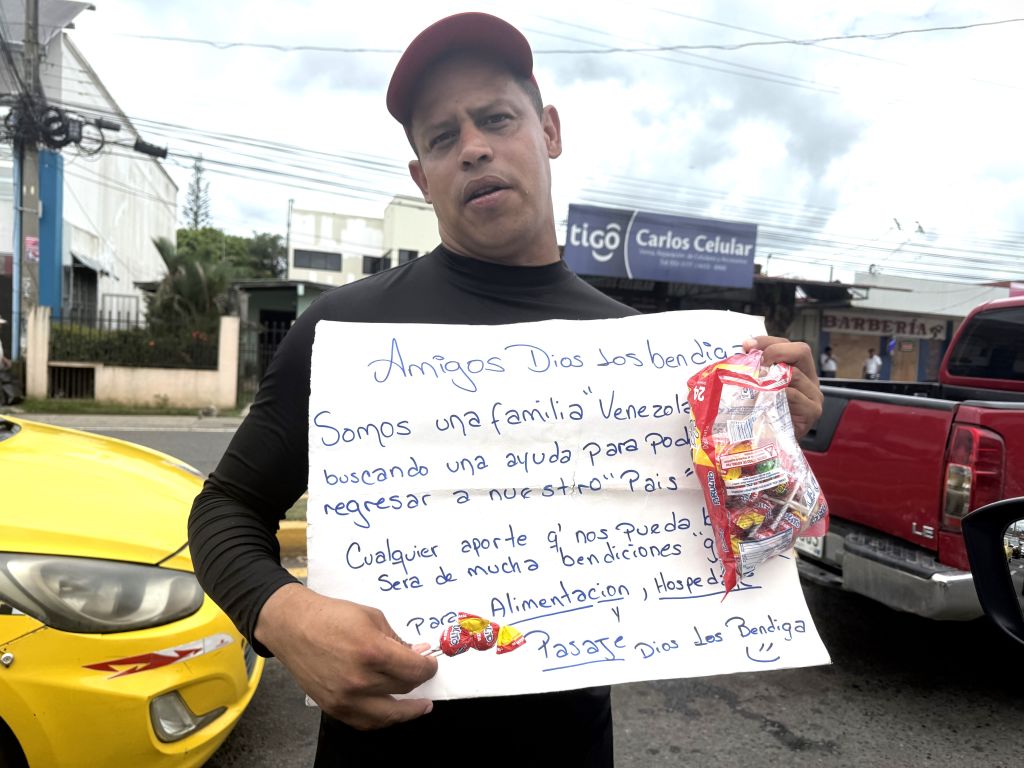 tigo
Carlos Celular
Venta, Reparación de Celulares y Accesorios
BARBERÍA
Amigos Dios los bendiga
Somos una familia "Venezola
buscando una ayuda para pod
regresar a nuestro "Pais"
Cualquier aporte q' nos pueda
Sera de mucha bendiciones "g
para Alimentacion, Hospedaje
y
Pasaje Dios los Bendiga
24
LE